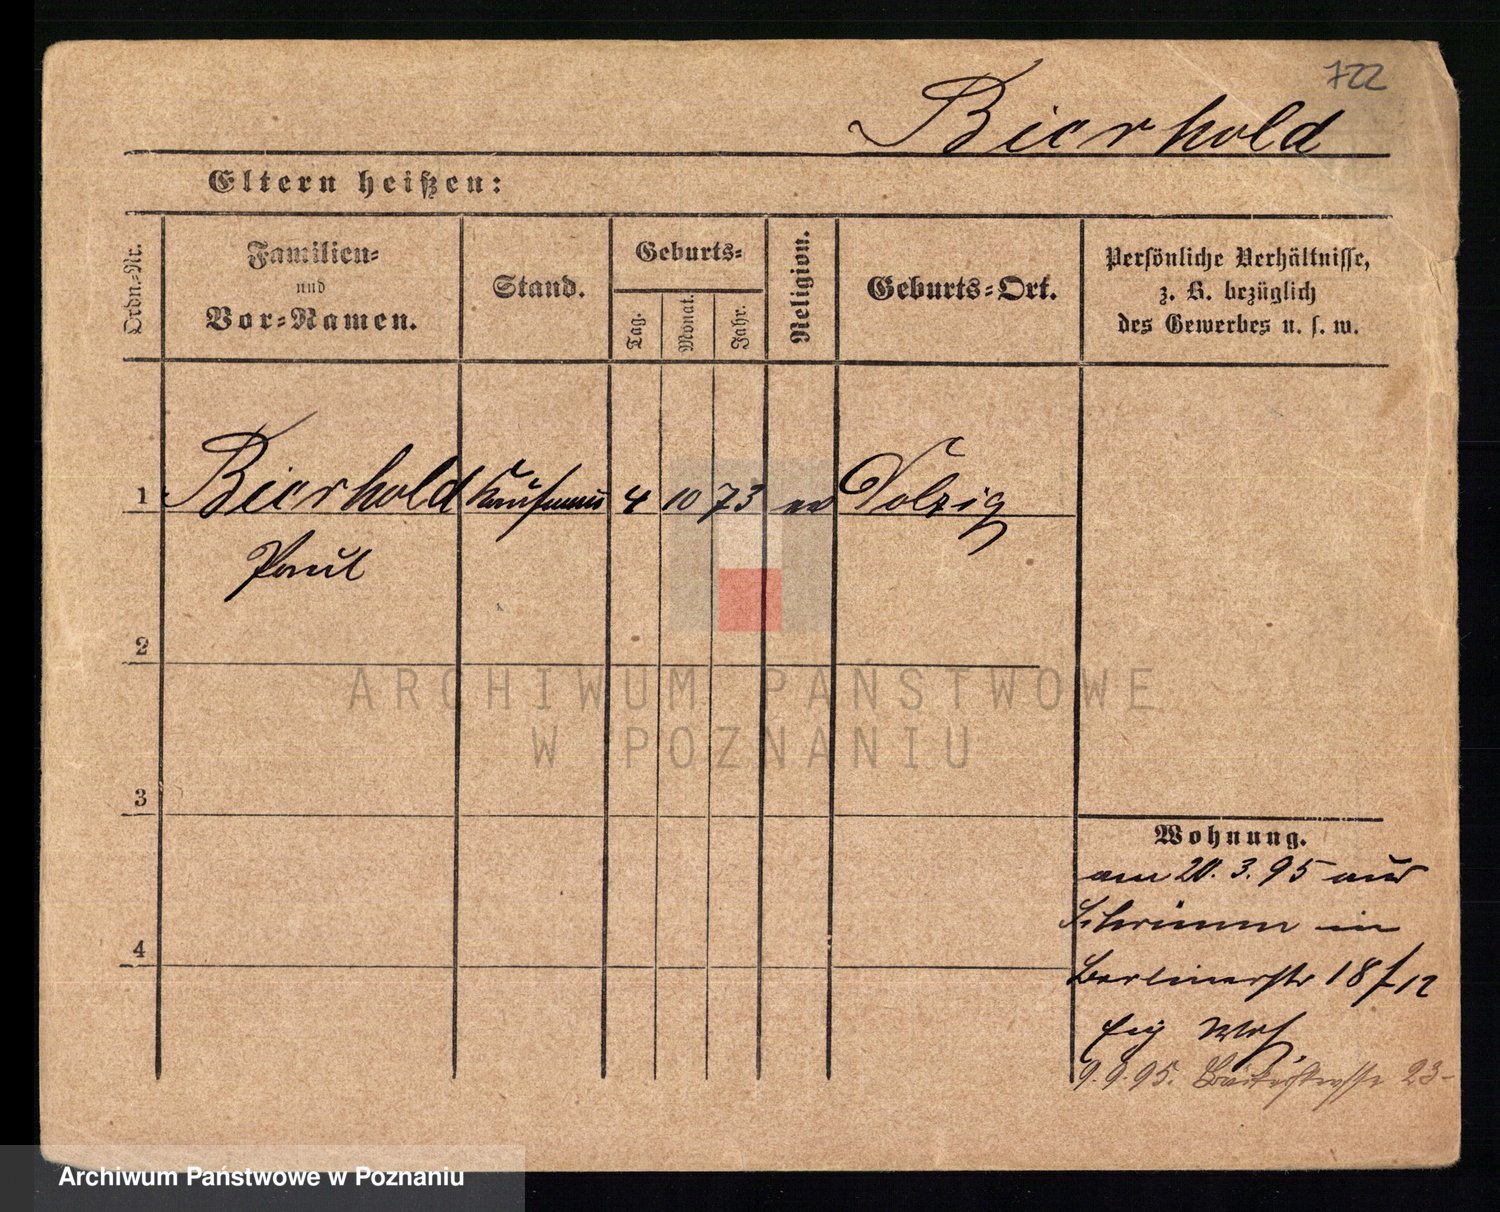 722
Bierhold
Eltern heißen:
Ordn.-Nr.
Familien-
und
Vor-Namen.
Stand.
Geburts-
Tag.
Monat.
Jahr.
Religion.
Geburts-Ort.
Persönliche Verhältnisse,
z. B. bezüglich
des Gewerbes u. s. w.
1 Bierhold Kaufmann 4 10 73 ev Dolzig
Paul
2
3
4
Wohnung.
am 20. 3. 95 aus
Schrimm in
Berlinerstr 18 f 12
Eig Whg
9. 9. 95. 23-
ARCHIWUM PAŃSTWOWE
W POZNANIU
Archiwum Państwowe w Poznaniu